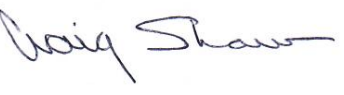 Craig Shaw